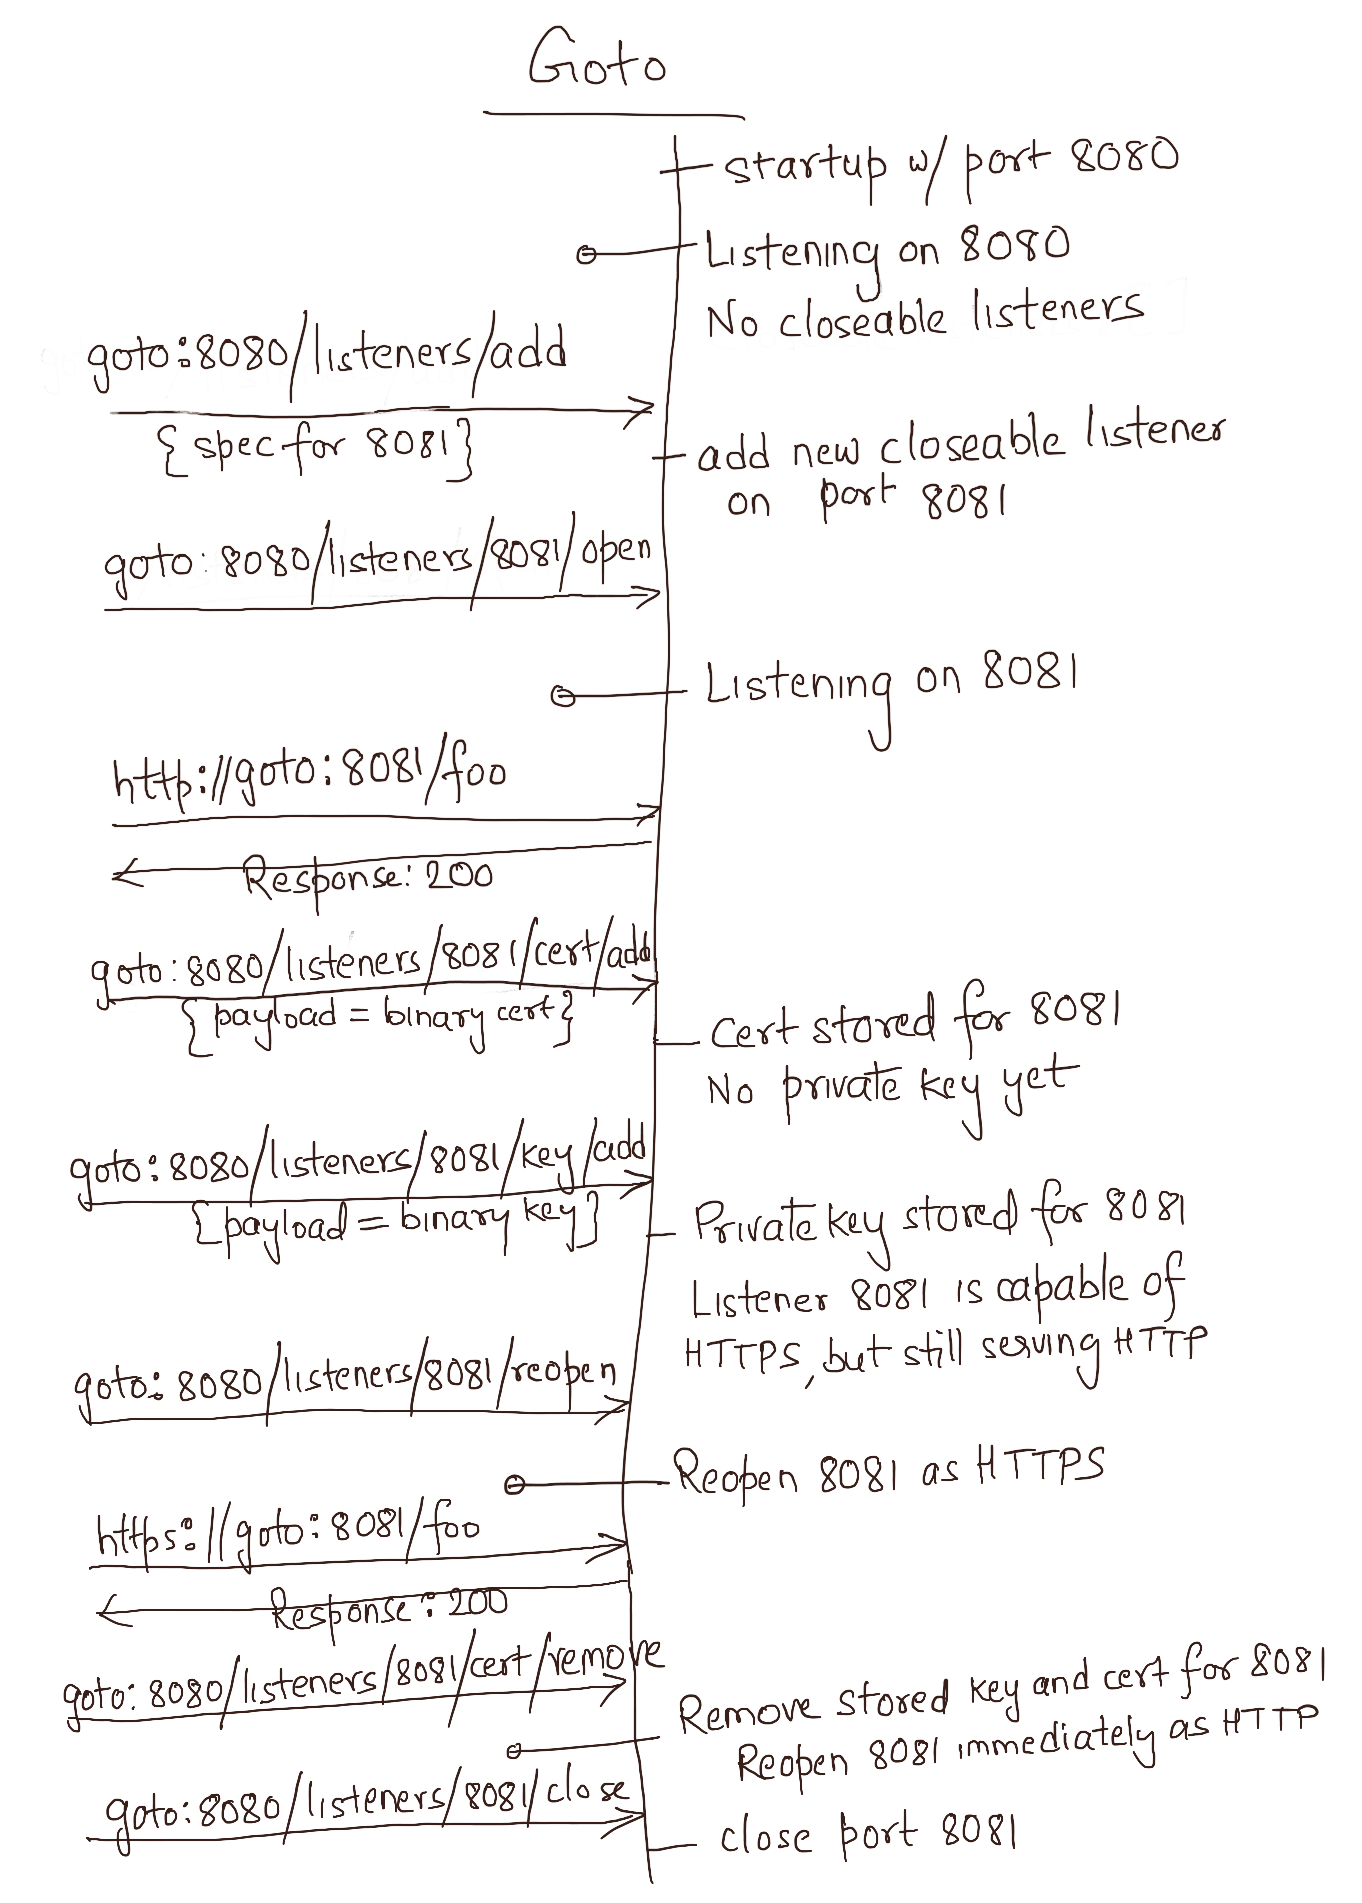 Goto
startup w/ port 8080
Listening on 8080
No closeable listeners
goto:8080/listeners/add
{spec for 8081}
add new closeable listener
on port 8081
goto:8080/listeners/8081/open
Listening on 8081
http://goto:8081/foo
Response: 200
goto:8080/listeners/8081/cert/add
{payload = binary cert}
Cert stored for 8081
No private key yet
goto:8080/listeners/8081/key/add
{payload = binary key}
Private key stored for 8081
Listener 8081 is capable of
HTTPS, but still serving HTTP
goto:8080/listeners/8081/reopen
Reopen 8081 as HTTPS
https://goto:8081/foo
Response: 200
goto:8080/listeners/8081/cert/remove
Remove stored key and cert for 8081
Reopen 8081 immediately as HTTP
goto:8080/listeners/8081/close
close port 8081